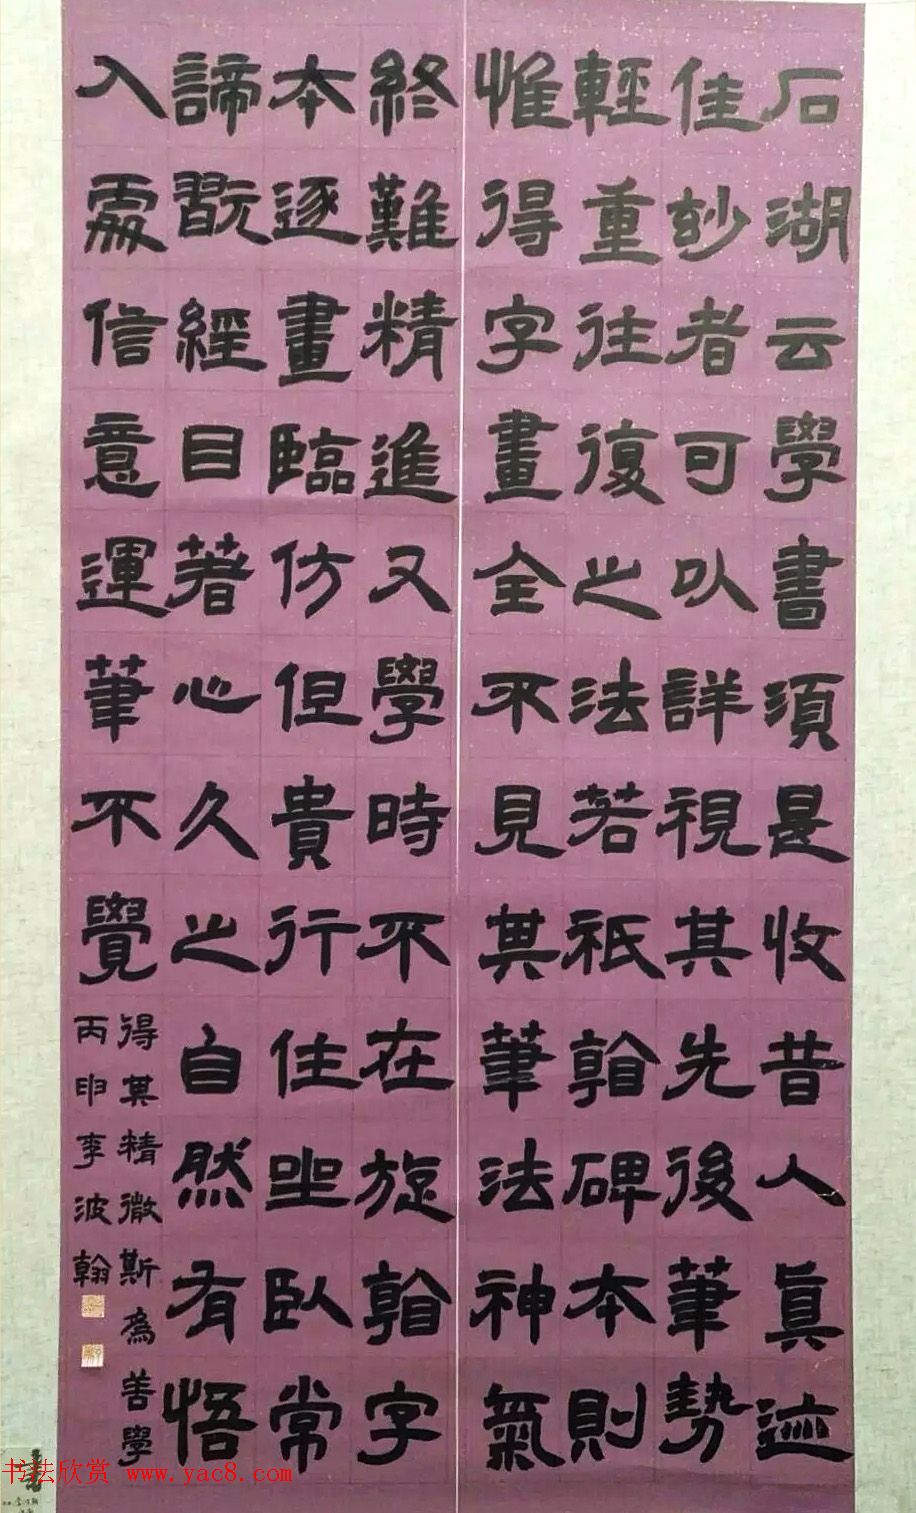 石湖云學書須是收昔人眞迹
佳妙者可以詳視其先後筆勢
輕重往復之法若祇看碑本則
惟得字畫全不見其筆法神氣
終難精進又學時不在旋看字
本逐畫臨仿但貴行住坐臥常
諦翫經目著心久之自然有悟
入處信意運筆不覺
得其精微斯為善學
丙申李波翰
书法欣赏 www.yac8.com